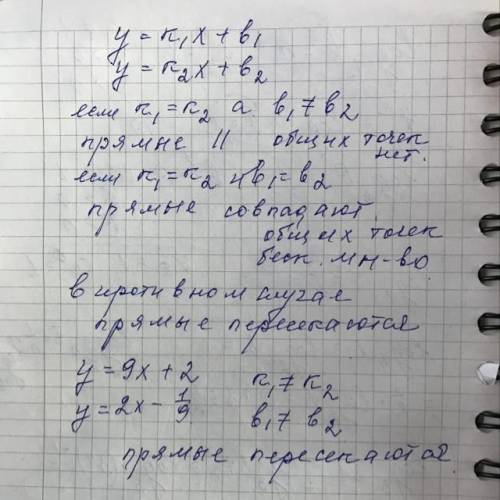 y = к₁x + в₁
y = к₂x + в₂
если к₁ = к₂ а в₁ ≠ в₂
прямые || общих точек
нет.
если к₁ = к₂ и в₁ = в₂
прямые совпадают
общих точек
беск. мн-во
в противном случае
прямые пересекаются
y = 9x + 2 к₁ ≠ к₂
y = 2x - 1/9 в₁ ≠ в₂
прямые пересекаются